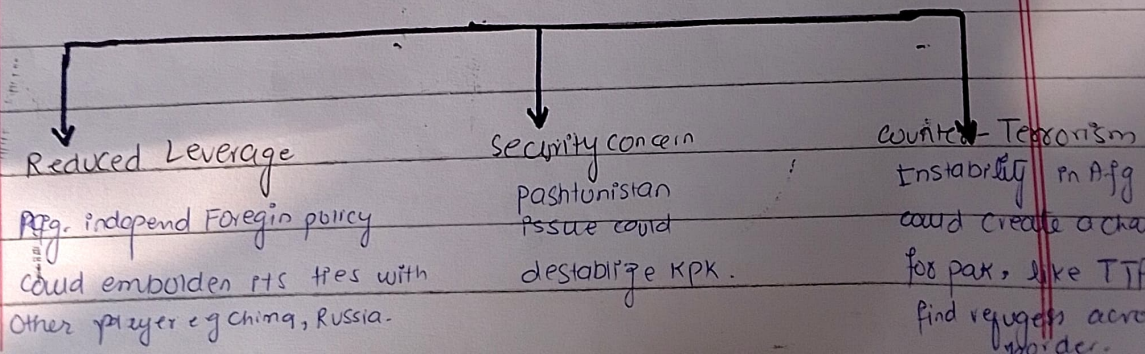 Reduced Leverage
Afg. independ Foregin policy
coud embolden its ties with
other player eg China, Russia.
Security concein
pashtunistan
issue could
destablize KPK.
Counter-Terrorism
Instability in Afg
coud create a cha
for pak, like TTP
find refugess acro
border.